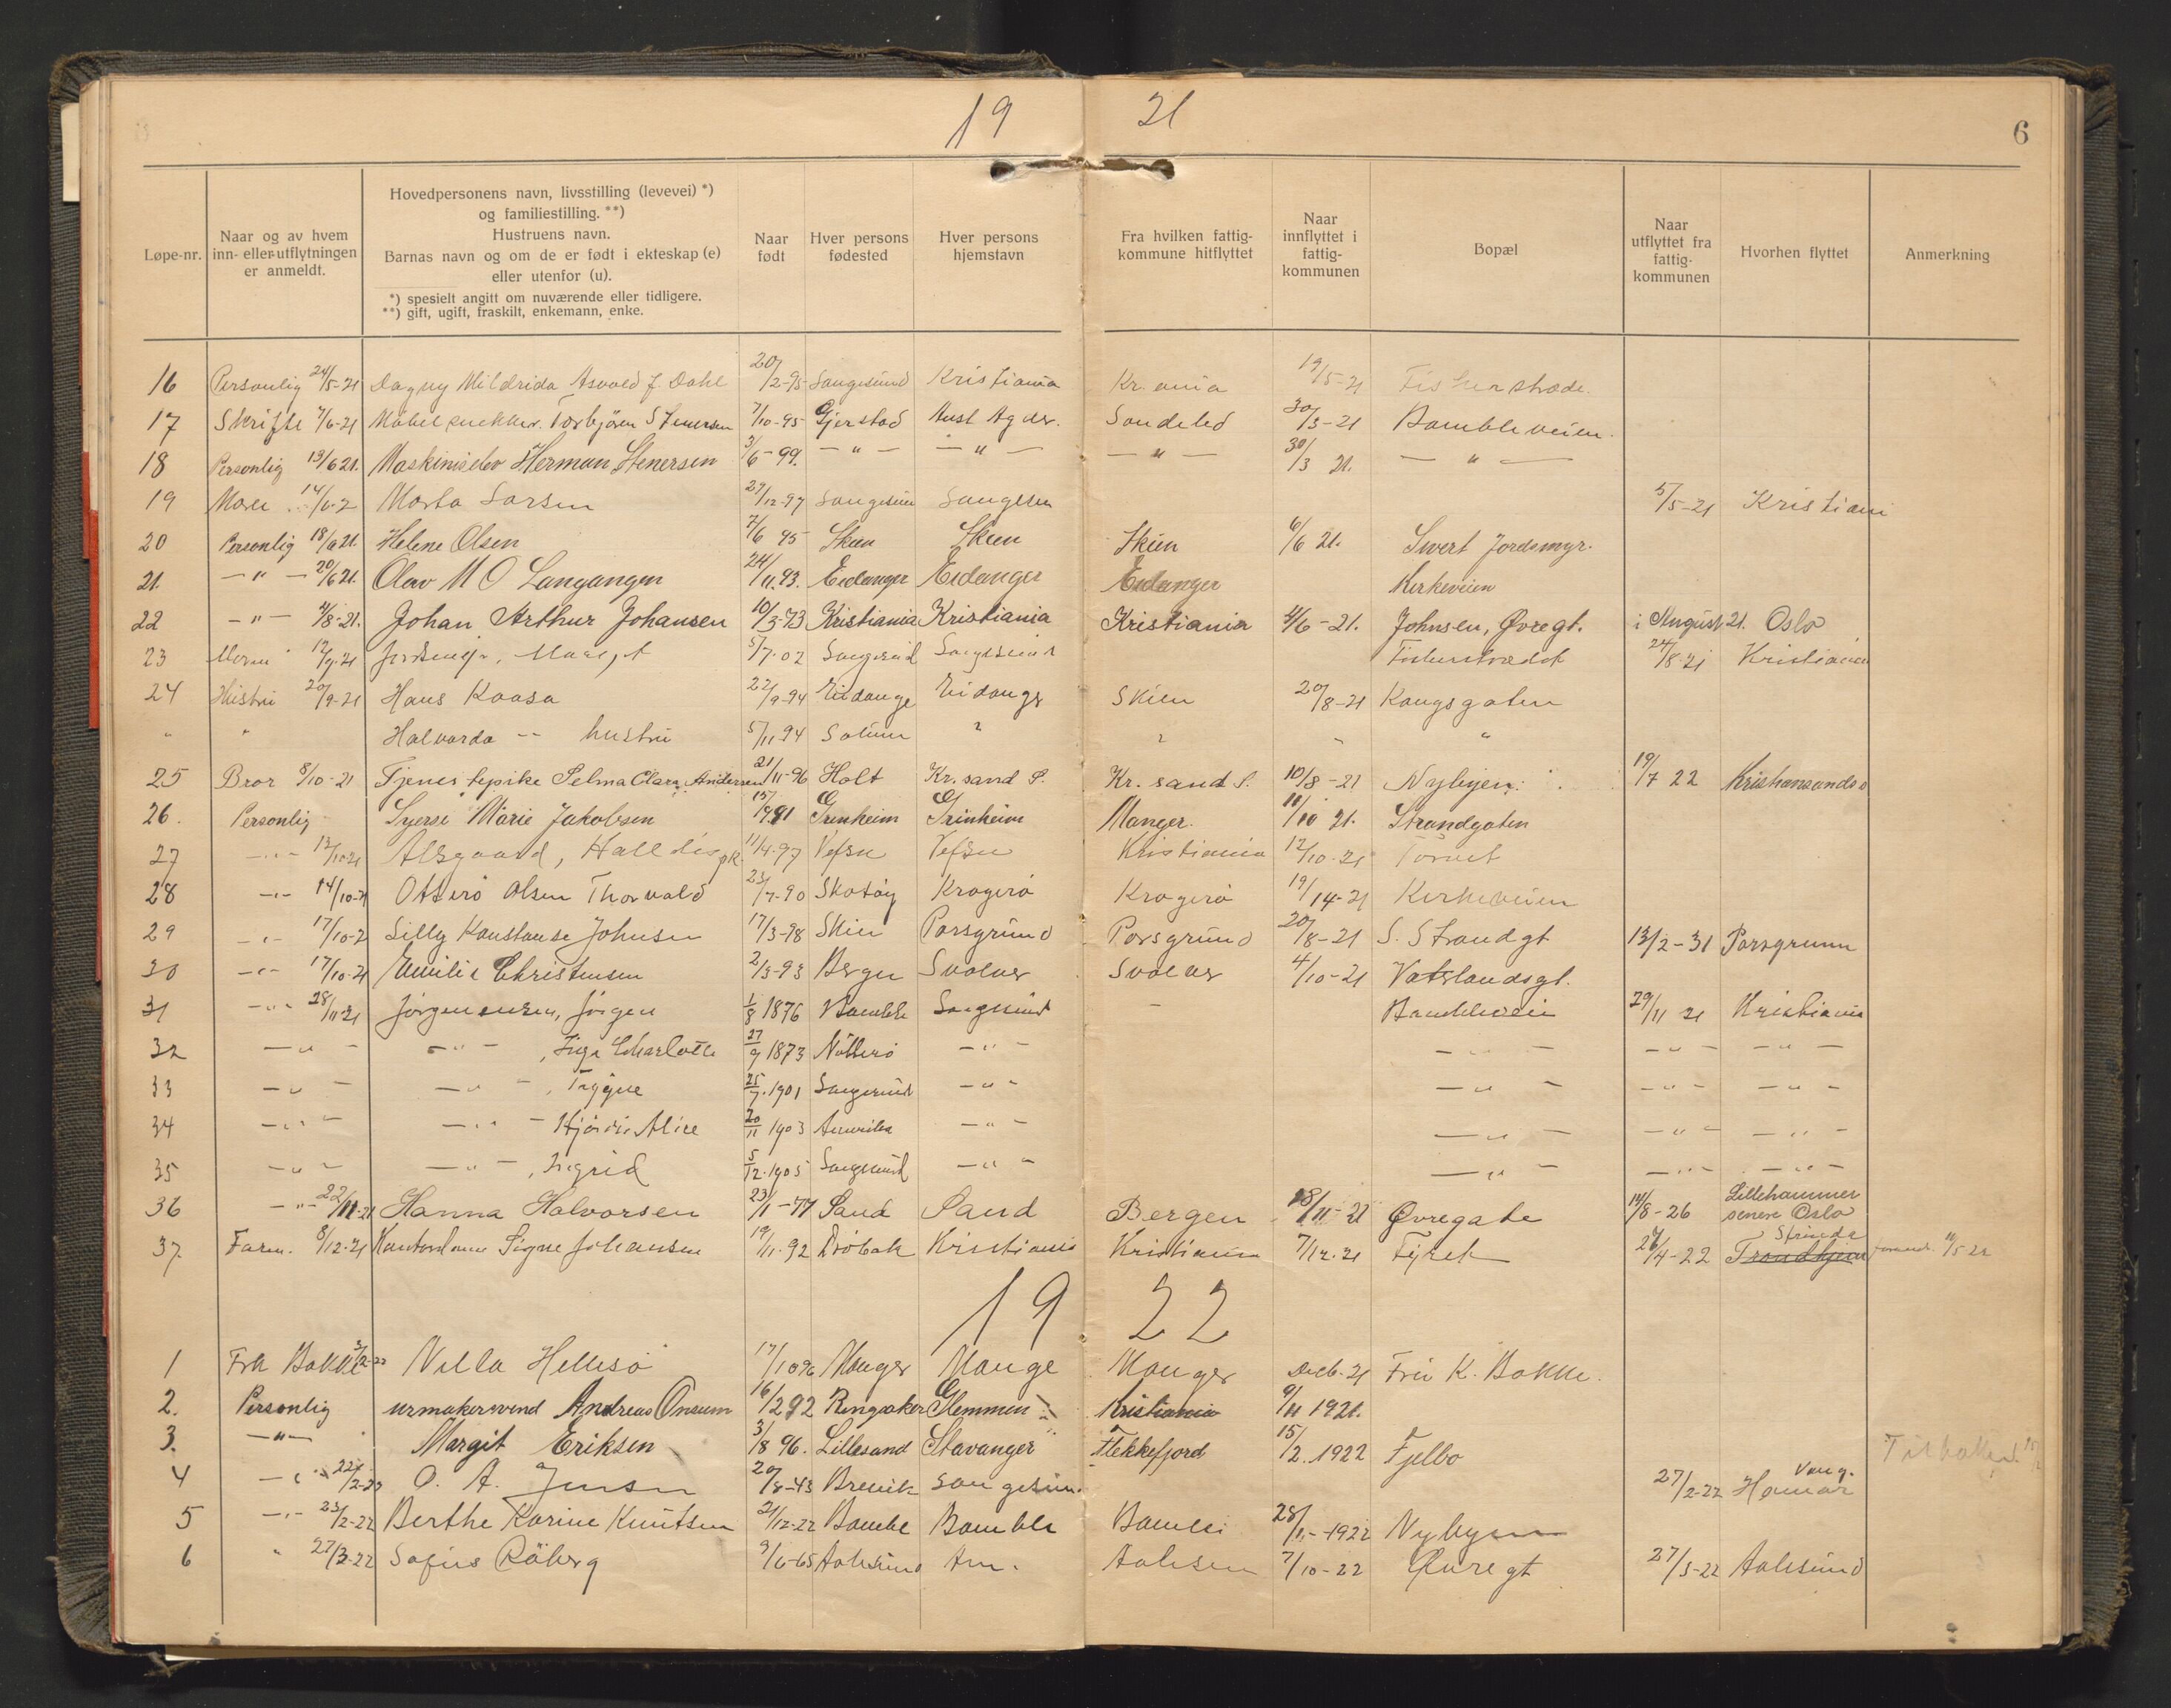 19 21
6
Løpe-nr. | Naar og av hvem inn- eller utflytningen er anmeldt. | Hovedpersonens navn, livsstilling (levevei) *) og familiestilling. **) Hustruens navn. Barnas navn og om de er født i ekteskap (e) eller utenfor (u). *) spesielt angitt om nuværende eller tidligere. **) gift, ugift, fraskilt, enkemann, enke. | Naar født | Hver persons fødested | Hver persons hjemstavn | Fra hvilken fattig-kommune hitflyttet | Naar innflyttet i fattig-kommunen | Bopæl | Naar utflyttet fra fattig-kommunen | Hvorhen flyttet | Anmerkning
16 Personlig 24/5-21 Dagny Mildrida Asvold f. Dahl 20/2-95 Langesund Kristiania Kr.ania 19/5-21 Fisherstræde.
17 Skriftl 7/6-21 Torbjören Stenersen 7/10-95 Gjerstad Aust Agder. Søndeled 30/3-21 Bambleveien.
18 Personlig 13/6 21. Maskiniselev Herman Stenersen 3/6-99. — " — — " — — " — 30/3 21. — " —
19 14/6-2 Marta Larsen 27/12-97 5/5-21 Kristiani
20 Personlig 18/6 21. Helene Olsen 7/6 95 Skien Skien Skien 6/6 21. Sivert Jordsmyr.
21. — " — 20/6 21. Olav M O Langangen 24/11.93. Eidanger Eidanger Eidanger Kirkeveien
22 — " — 4/8-21. Johan Arthur Johansen 10/3-73 Kristiania Kristiania Kristiania 4/6-21. Johnsen, Øvregt. i August 21. Oslo
23 12/9-21 5/7-02 Langesund Langesund Fisherstrædet 24/8-21 Kristiania
24 Hustru 20/9-21 Hans Kaasa 22/9-94 Eidange Eidange Skien 20/8-21 Kongsgaten
" " Halvarda -- hustru 5/11 94 Solum " " " "
25 Bror 8/10-21 Tjenestepike Selma Clara Andersen 21/11-96 Holt Kr.sand S. Kr. sand S. 10/8-21 Nybyen. 19/7 22 Kristiansands
26. Personlig Syersi Marie Jakobsen Grenheim Grinheim Manger. 11/10 21. Strandgaten
27 -"- 12/10-21 Alsgaard, Halldis 11/4-97 Vefsn Vefsn Kristiania 12/10-21 Torvet
28 -"- 14/10-21 Otterö Olsen Thorvald 23/7-90 Skatöy Kragerö Kragerö 19/14-21 Kirkeveien
29 -"- 17/10-2 Lilly Konstanse Johnsen 17/3-98 Skien Porsgrund Porsgrund 20/8-21 S. Strandgt 13/2-31 Porsgrunn
30 -"- 17/10-21 Emilie Christensen 2/3-93 Bergen Svolvær Svolvær 4/10-21 Vaterlandsgt.
31 -"- 28/11-21 Jörgensen, Jörgen 1/8 1876 Bamble Langesund - Bambleveien 29/11 21 Kristiania
32 — " — — " — , Inga Charlotte 27/9 1873 Nötterö — " — — " — — " — — " —
33 — " — — " — , Trygve 25/7.1901 Langesund — " — — " — — " — — " —
34 — " — — " — Hjördis Alice 20/11 1903 Amerika — " — — " — — " — — " —
35 — " — — " — , Ingrid 5/12.1905 Langesund — " — — " — — " — — " —
36 -"- 22/11-21 Hanna Halvorsen 23/1-77 Sand Sand Bergen 18/11-21 Øvregate 14/8-26 Lillehammer senere Oslo
37 Farm. 8/12-21 Kontordame Signe Johansen 19/11-92 Dröbak Kristiania Kristiania 7/12.21 Fyret 24/4-22 Strinda Trondhjem 11/5 22
19 22
1 Frk Bakke 3/2-22 Nilla Hellesö 17/10 96 Manger Mange Manger Decb. 21 Frk K. Bakke.
2. Personlig urmakersvend Andreas Onsum 16/2 92 Ringsaker Glemmen Kristiania 9/11 1921.
3. — " — Margit Eriksen 3/8 96. Lillesand Stavanger Flekkefjord 15/2. 1922 Fjelbo
4 — " — 22/2-22 O. A. Jensen 20/8-43 Brevik Langesun. 27/2-22 Vang. Hamar
5 -"- 23/2-22 Berthe Karine Knutsen 21/12-22 Bambl Bamble Bamble 28/11-1922 Nybyen
6 " 27/3-22 Sofus Röberg 9/6-65 Aalesund Aalesun 7/10-22 Øvregt 27/3-22 Aalesund